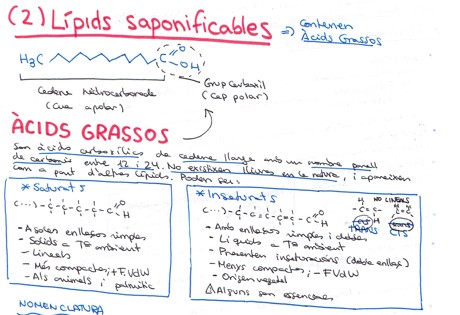 (2) Lípids saponificables => Contenen
Àcids Grassos
H₃C C O OH
Cadena hidrocarbonada
(cua apolar)
Grup Carboxil
(Cap polar)
ÀCIDS GRASSOS
Són àcids carboxílics de cadena llarga amb un nombre parell
de carbonis entre 12 i 24. No existeixen lliures en la natura, i apareixen
com a part d'altres lípids. Poden ser:
* Saturats
C...)-C-C-C-C-C O H
- Sols enllaços simples
- Sòlids a Tª ambient
- Lineals
- Més compactes; + F.VdW
- Als animals i palmític
* Insaturats
NO LINEALS
TRANS CIS
- Amb enllaços simples i dobles
- Líquids a Tª ambient
- Presenten insaturacions (doble enllaç)
- Menys compactes; - F.VdW
- Origen vegetal
⚠ Alguns són essencials
NOMENCLATURA